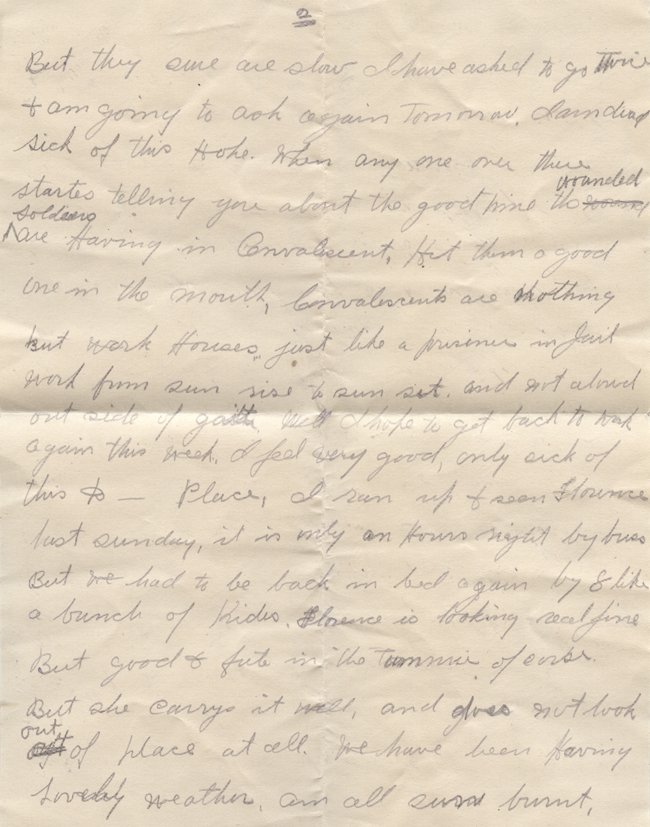 2
But they sure are slow I have asked to go Twice
& am going to ask again Tomorrow. I am dead
sick of this Hole. When any one over there
startes telling you about the good time the wounded
soldiers
are Having in Convalescent, Hit them a good
one in the mouth, Convalescents are nothing
but work Houses, just like a prisoner in Jail
work from sun rise to sun set. and not aloud
out side of gate. Well I hope to get back to work
again this week. I feel very good, only sick of
this D — Place, I run up & seen Florence
last sunday, it is only an Hours right by buss
But we had to be back in bed again by 8 like
a bunch of Kides. Florence is looking real fine
But good & fate in the Tummie of corse.
But she carrys it well, and does not look
out of place at all. We have been Having
Lovely weather, am all sun burnt,